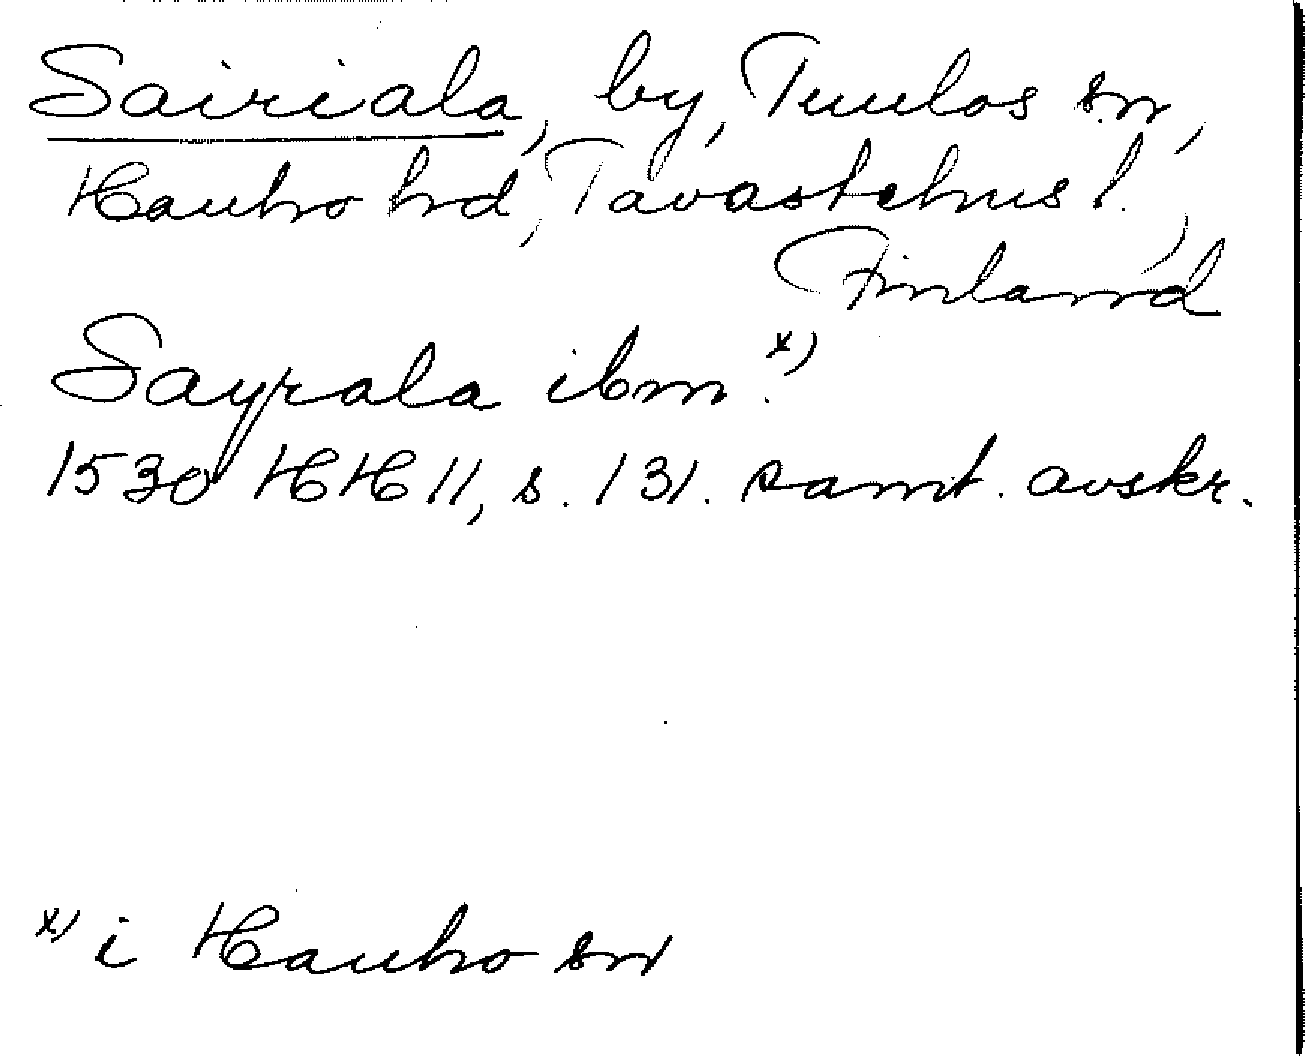 Sairiala, by, Tuulos sn,
Hauho hrd, Tavastehus l.,
Finland
Sayrala ibm. x)
1530 HH 11, s. 131. samt. avskr.
x) i Hauho sn